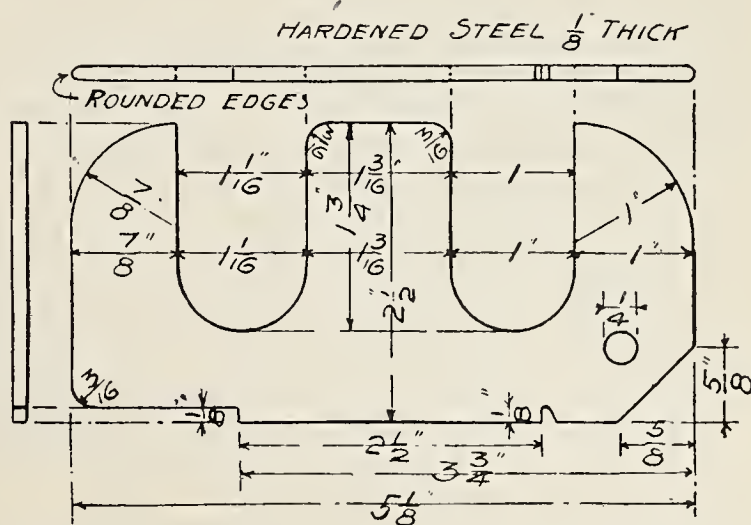 HARDENED STEEL 1/8" THICK
ROUNDED EDGES
3/16
3/16
1 1/16"
1 3/16"
1
7/8
1 3/4"
1"
7/8"
1 1/16"
1 3/16"
1"
1"
2 1/2"
1/4
3/16
1/8"
1/8"
5/8"
2 1/2"
5/8
3 3/4"
5 1/8"